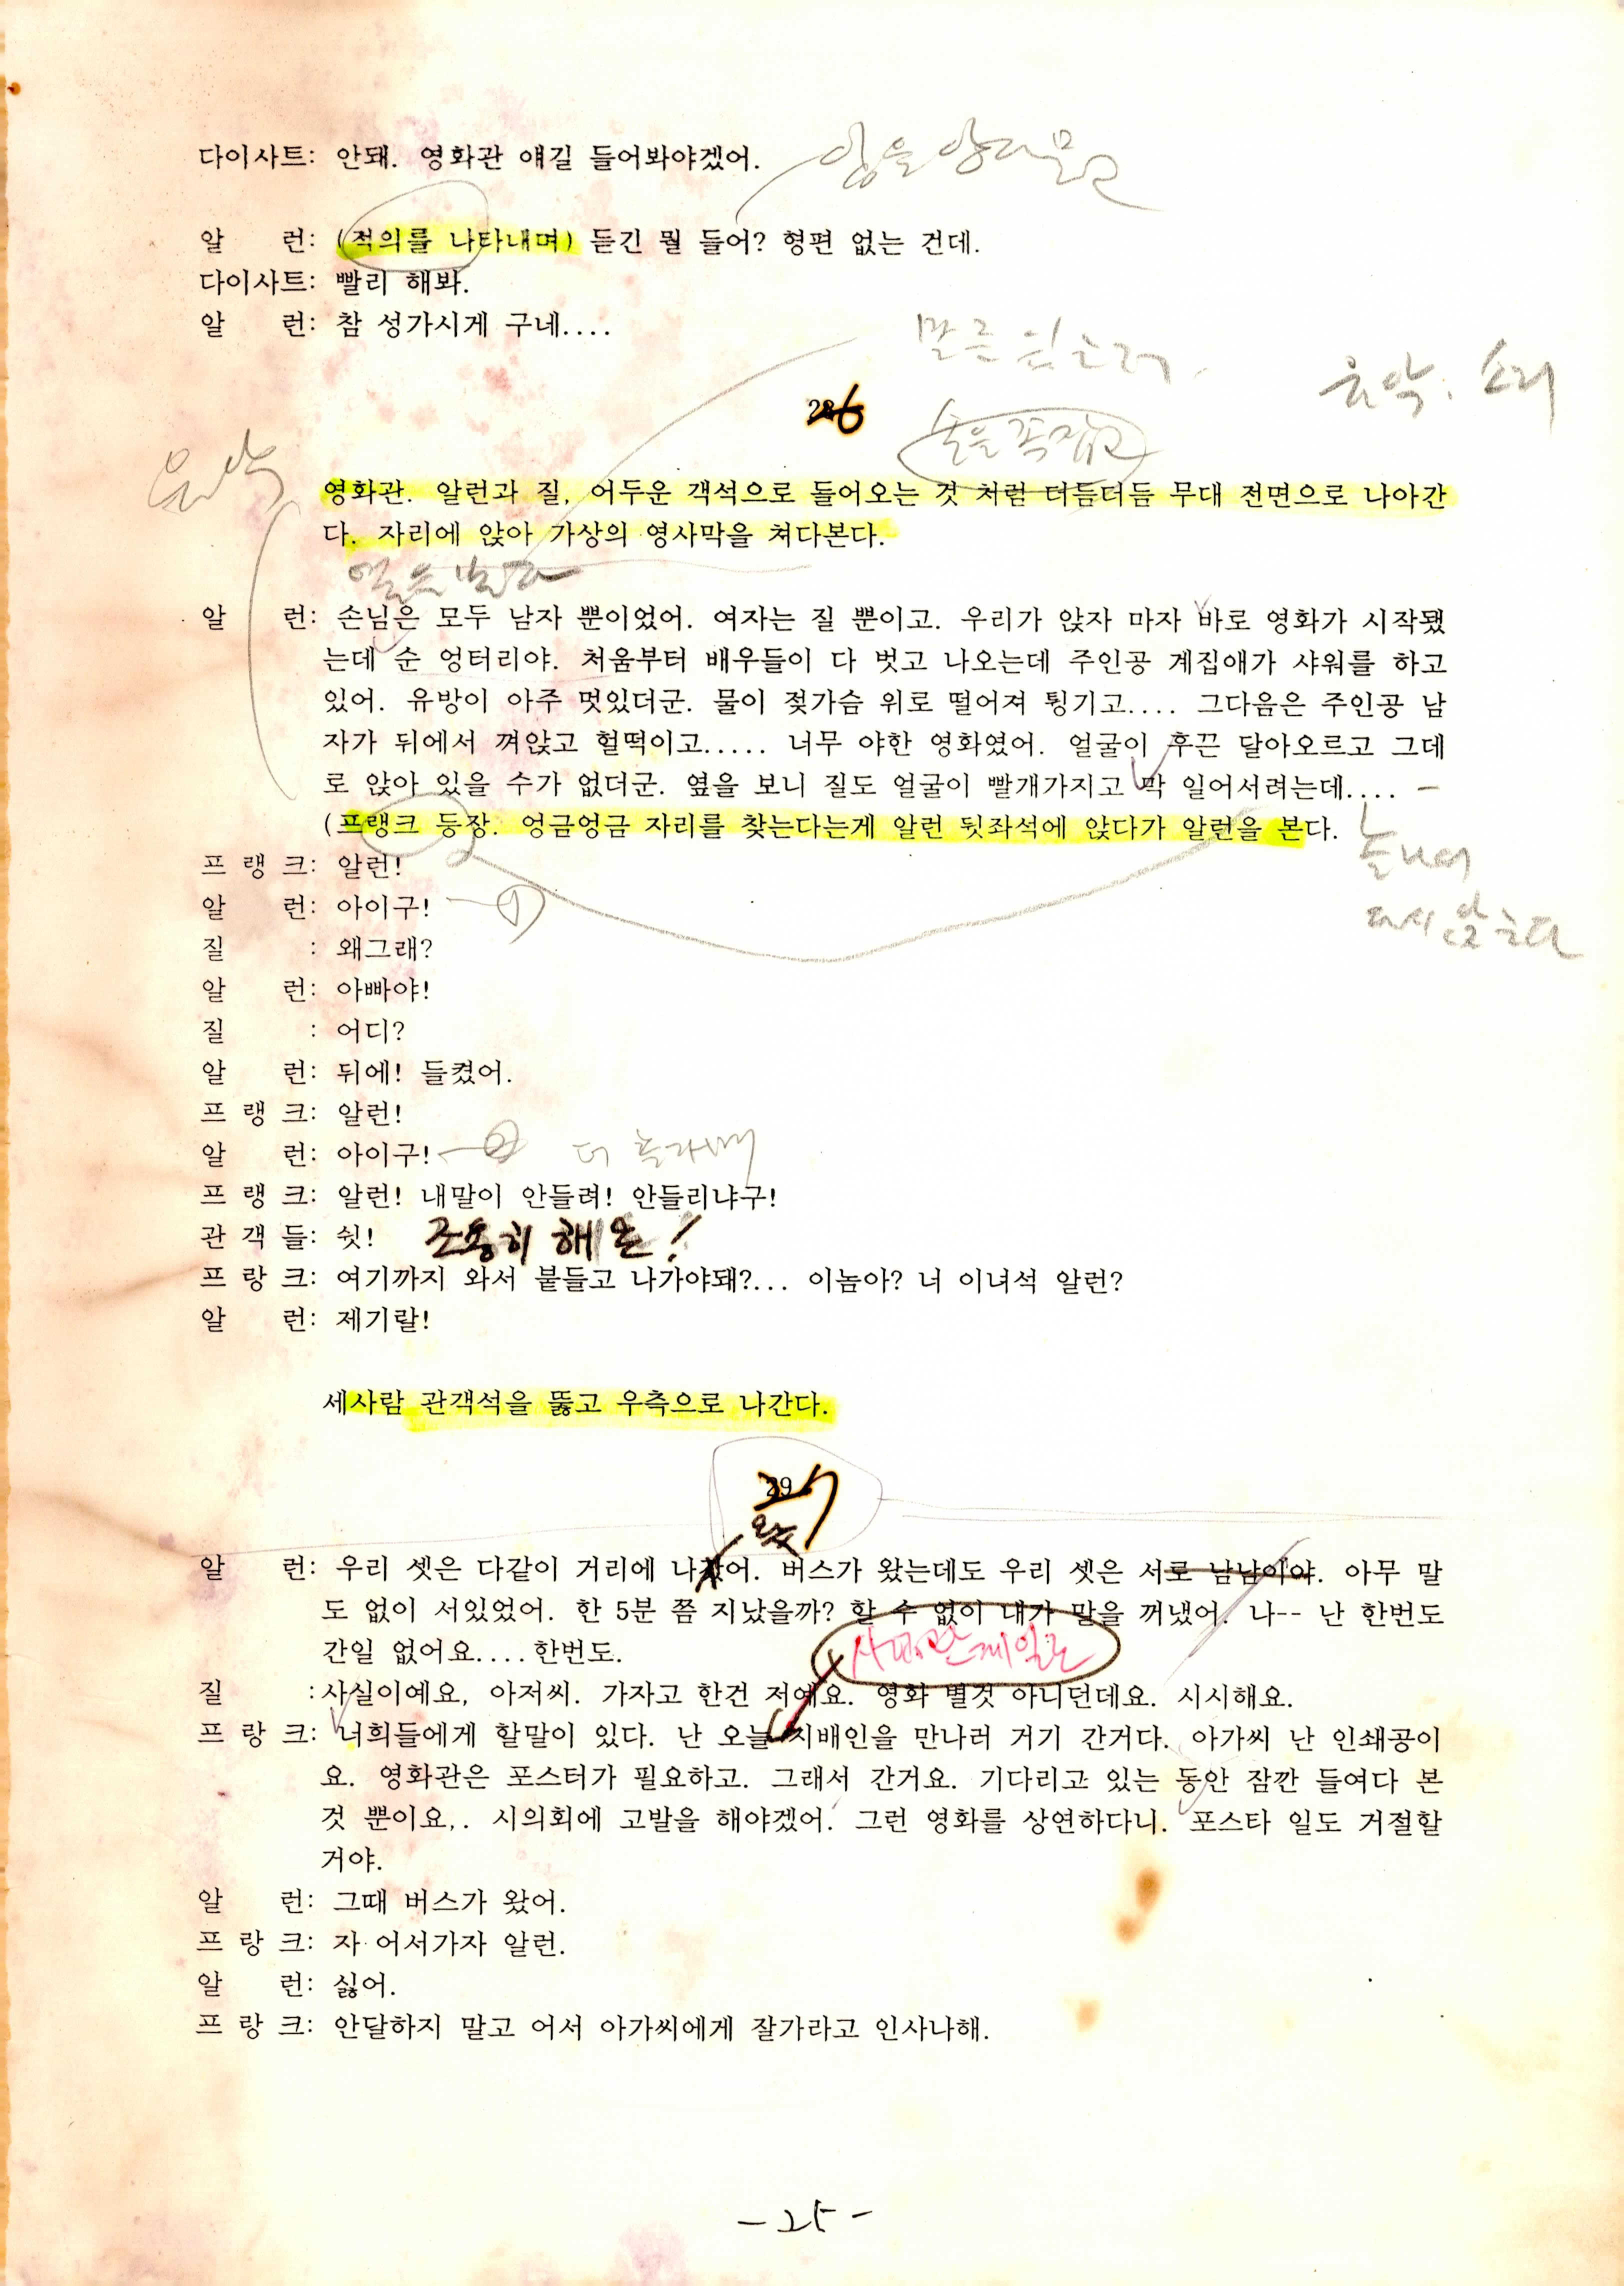 다이사트: 안돼. 영화관 얘길 들어봐야겠어.
입을 앙다물고
알 런: (적의를 나타내며) 듣긴 뭘 들어? 형편 없는 건데.
다이사트: 빨리 해봐.
알 런: 참 성가시게 구네....
음악. 소리
26
손을 꼭잡고
음악
영화관. 알런과 질, 어두운 객석으로 들어오는 것 처럼 더듬더듬 무대 전면으로 나아간
다. 자리에 앉아 가상의 영사막을 쳐다본다.
알 런: 손님은 모두 남자 뿐이었어. 여자는 질 뿐이고. 우리가 앉자 마자 바로 영화가 시작됐
는데 순 엉터리야. 처음부터 배우들이 다 벗고 나오는데 주인공 계집애가 샤워를 하고
있어. 유방이 아주 멋있더군. 물이 젖가슴 위로 떨어져 튕기고.... 그다음은 주인공 남
자가 뒤에서 껴앉고 헐떡이고..... 너무 야한 영화였어. 얼굴이 후끈 달아오르고 그데
로 앉아 있을 수가 없더군. 옆을 보니 질도 얼굴이 빨개가지고 막 일어서려는데....
(프랭크 등장. 엉금엉금 자리를 찾는다는게 알런 뒷좌석에 앉다가 알런을 본다.
놀나며
다시 앉는다
프 랭 크: 알런!
알 런: 아이구! ①
질 : 왜그래?
알 런: 아빠야!
질 : 어디?
알 런: 뒤에! 들켰어.
프 랭 크: 알런!
알 런: 아이구! ② 더 놀라며
프 랭 크: 알런! 내말이 안들려! 안들리냐구!
관 객 들: 쉿! 조용히 해요!
프 랑 크: 여기까지 와서 붙들고 나가야돼?... 이놈아? 너 이녀석 알런?
알 런: 제기랄!
세사람 관객석을 뚫고 우측으로 나간다.
29
왔
알 런: 우리 셋은 다같이 거리에 나갔어. 버스가 왔는데도 우리 셋은 서로 남남이야. 아무 말
도 없이 서있었어. 한 5분 쯤 지났을까? 할 수 없이 내가 말을 꺼냈어. 나-- 난 한번도
간일 없어요.... 한번도.
사업관계일로
질 :사실이예요, 아저씨. 가자고 한건 저예요. 영화 별것 아니던데요. 시시해요.
프 랑 크: 너희들에게 할말이 있다. 난 오늘 지배인을 만나러 거기 간거다. 아가씨 난 인쇄공이
요. 영화관은 포스터가 필요하고. 그래서 간거요. 기다리고 있는 동안 잠깐 들여다 본
것 뿐이요,. 시의회에 고발을 해야겠어. 그런 영화를 상연하다니. 포스타 일도 거절할
거야.
알 런: 그때 버스가 왔어.
프 랑 크: 자 어서가자 알런.
알 런: 싫어.
프 랑 크: 안달하지 말고 어서 아가씨에게 잘가라고 인사나해.
-25-